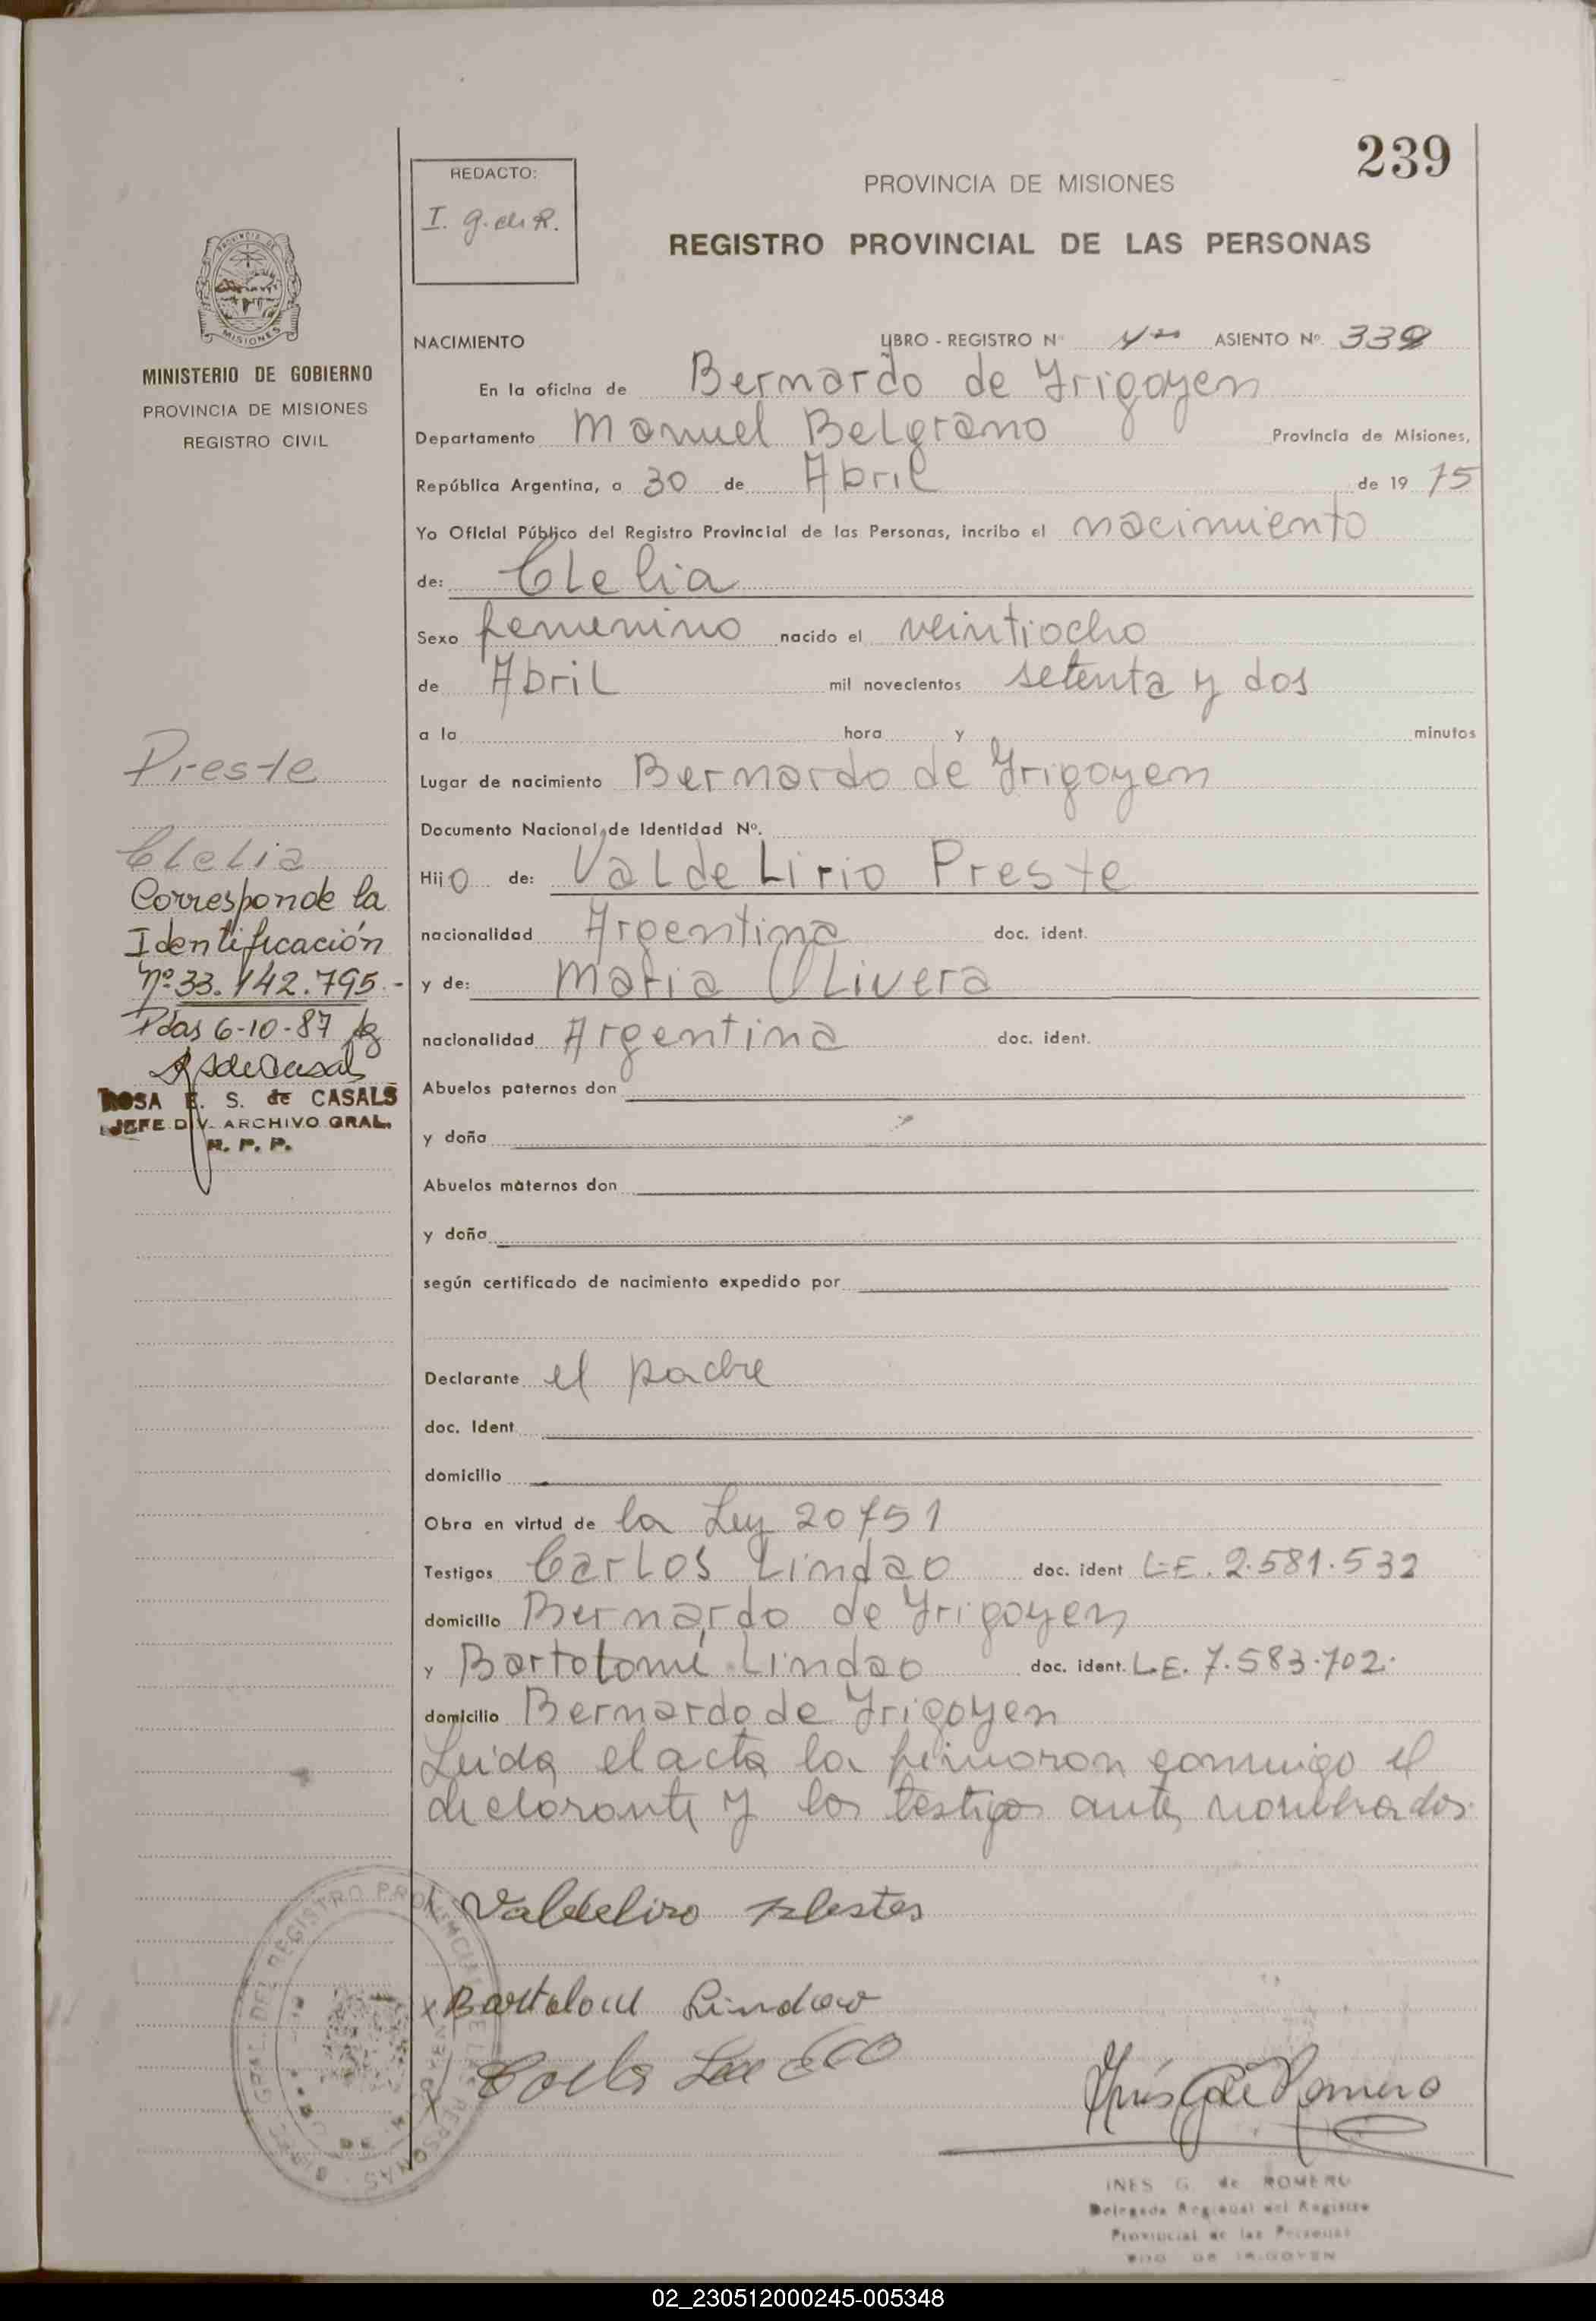 239
REDACTO:
I. G. de R.
PROVINCIA DE MISIONES
REGISTRO PROVINCIAL DE LAS PERSONAS
MISIONES
MINISTERIO DE GOBIERNO
PROVINCIA DE MISIONES
REGISTRO CIVIL
NACIMIENTO LIBRO - REGISTRO Nº ASIENTO Nº. 339
En la oficina de Bernardo de Yrigoyen
Departamento Manuel Belgrano Provincia de Misiones,
República Argentina, a 30 de Abril de 19 75
Yo Oficial Público del Registro Provincial de las Personas, incribo el nacimiento
de: Clelia
Sexo femenino nacido el veintiocho
de Abril mil novecientos setenta y dos
a la hora y minutos
Lugar de nacimiento Bernardo de Yrigoyen
Documento Nacional de Identidad Nº.
Hijo de: Valdelirio Preste
nacionalidad Argentina doc. ident.
y de: Maria Olivera
nacionalidad Argentina doc. ident.
Abuelos paternos don
y doña
Abuelos maternos don
y doña
según certificado de nacimiento expedido por
Declarante el padre
doc. Ident
domicilio
Obra en virtud de la Ley 20751
Testigos Carlos Lindao doc. ident L.E. 2.581.532
domicilio Bernardo de Yrigoyen
y Bartolomé Lindao doc. ident. L.E. 7.583.702.
domicilio Bernardo de Yrigoyen
Leida el acta la firmaron conmigo el
declarante y los testigos ante nombrados
Preste
Clelia
Corresponde la
Identificación
Nº 33.142.795.-
Pdas 6-10-87
ROSA E. S. de CASALS
JEFE DIV. ARCHIVO GRAL.
R. P. P.
Valdeliro Prestes
x Bartolome Lindao
INES G. de ROMERO
Delegada Regional del Registro
Provincial de las Personas
BDO DE IRIGOYEN
02_230512000245-005348